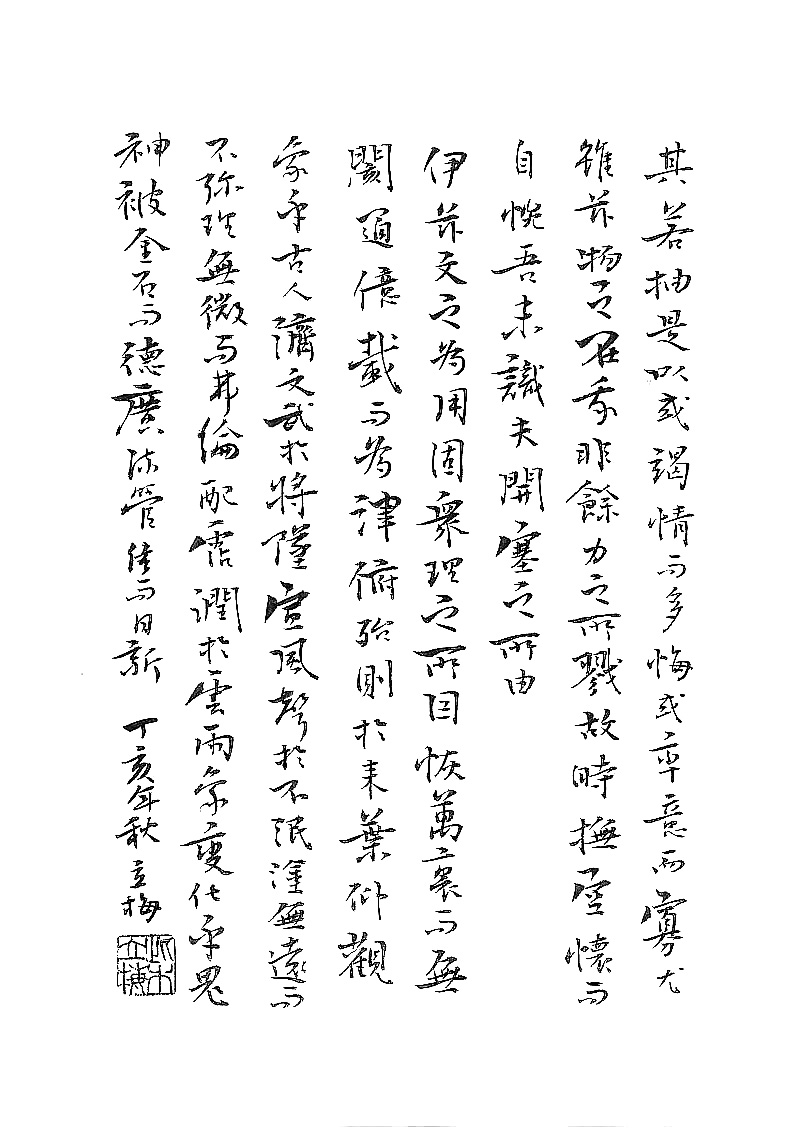 其若抽是以或竭情而多悔或率意而寡尤
雖茲物之在我非餘力之所戮故時撫空懷而
自惋吾未識夫開塞之所由
伊茲文之為用固衆理之所因恢萬裏而無
閡通億載而為津俯貽則於来葉仰觀
象乎古人濟文武於將墜宣風聲於不泯塗無遠而
不弥理無微而弗綸配霑潤於雲雨象變化乎鬼
神被金石而德廣流管絃而日新 丁亥年秋 立梅